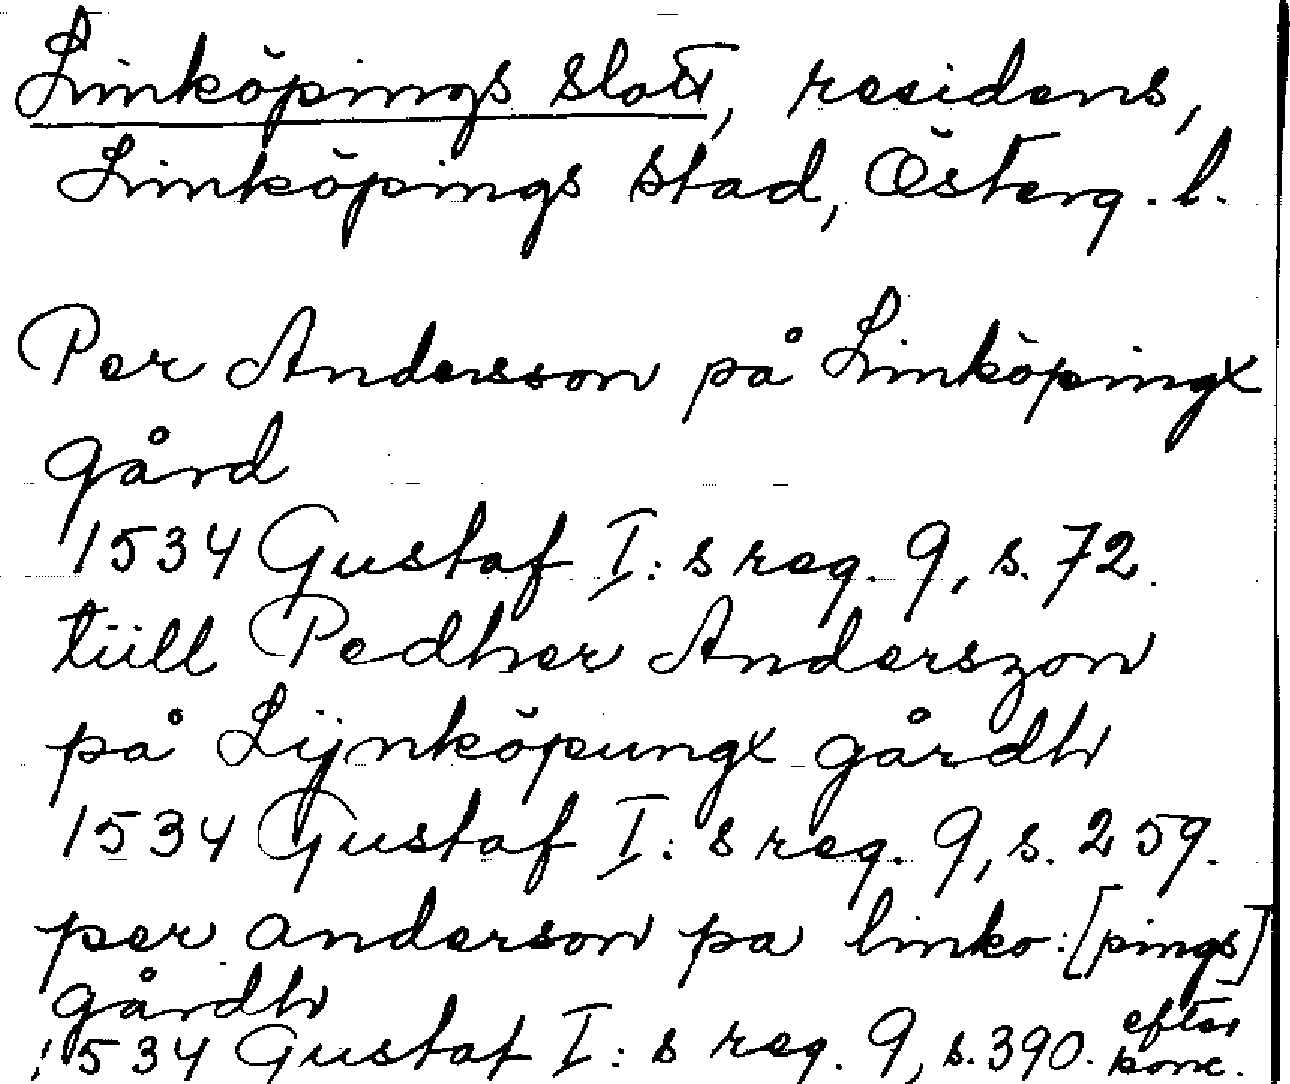 Linköpings slott, residens,
Linköpings stad, Österg. l.
Per Andersson på Linköpingx
gård
1534 Gustaf I: s reg. 9, s. 72.
tiill Pedher Anderszon
på Lijnköpungx gårdh
1534 Gustaf I: s reg. 9, s. 259.
per anderson pa linko: [pings]
gårdh
1534 Gustaf I: s reg. 9, s. 390. efter konc.